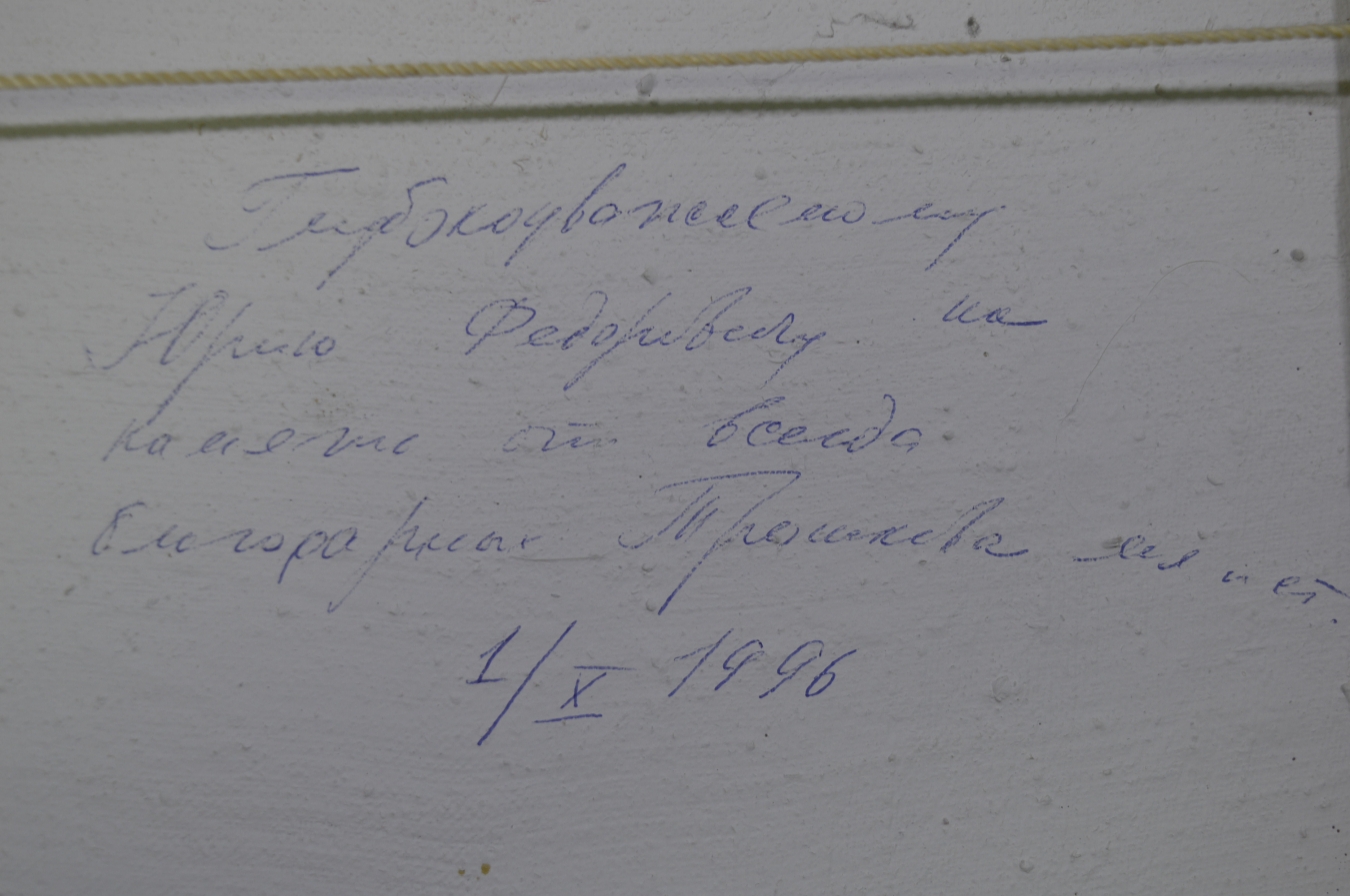 Глубокоуважаемому
Юрию Федоровичу на
память от всегда
благодарных Трошкова
1/X 1996